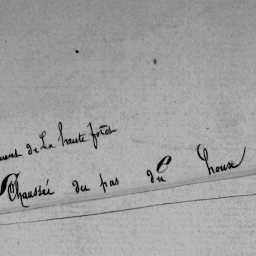 de La haute forêt
Chaussée du pas du Houx